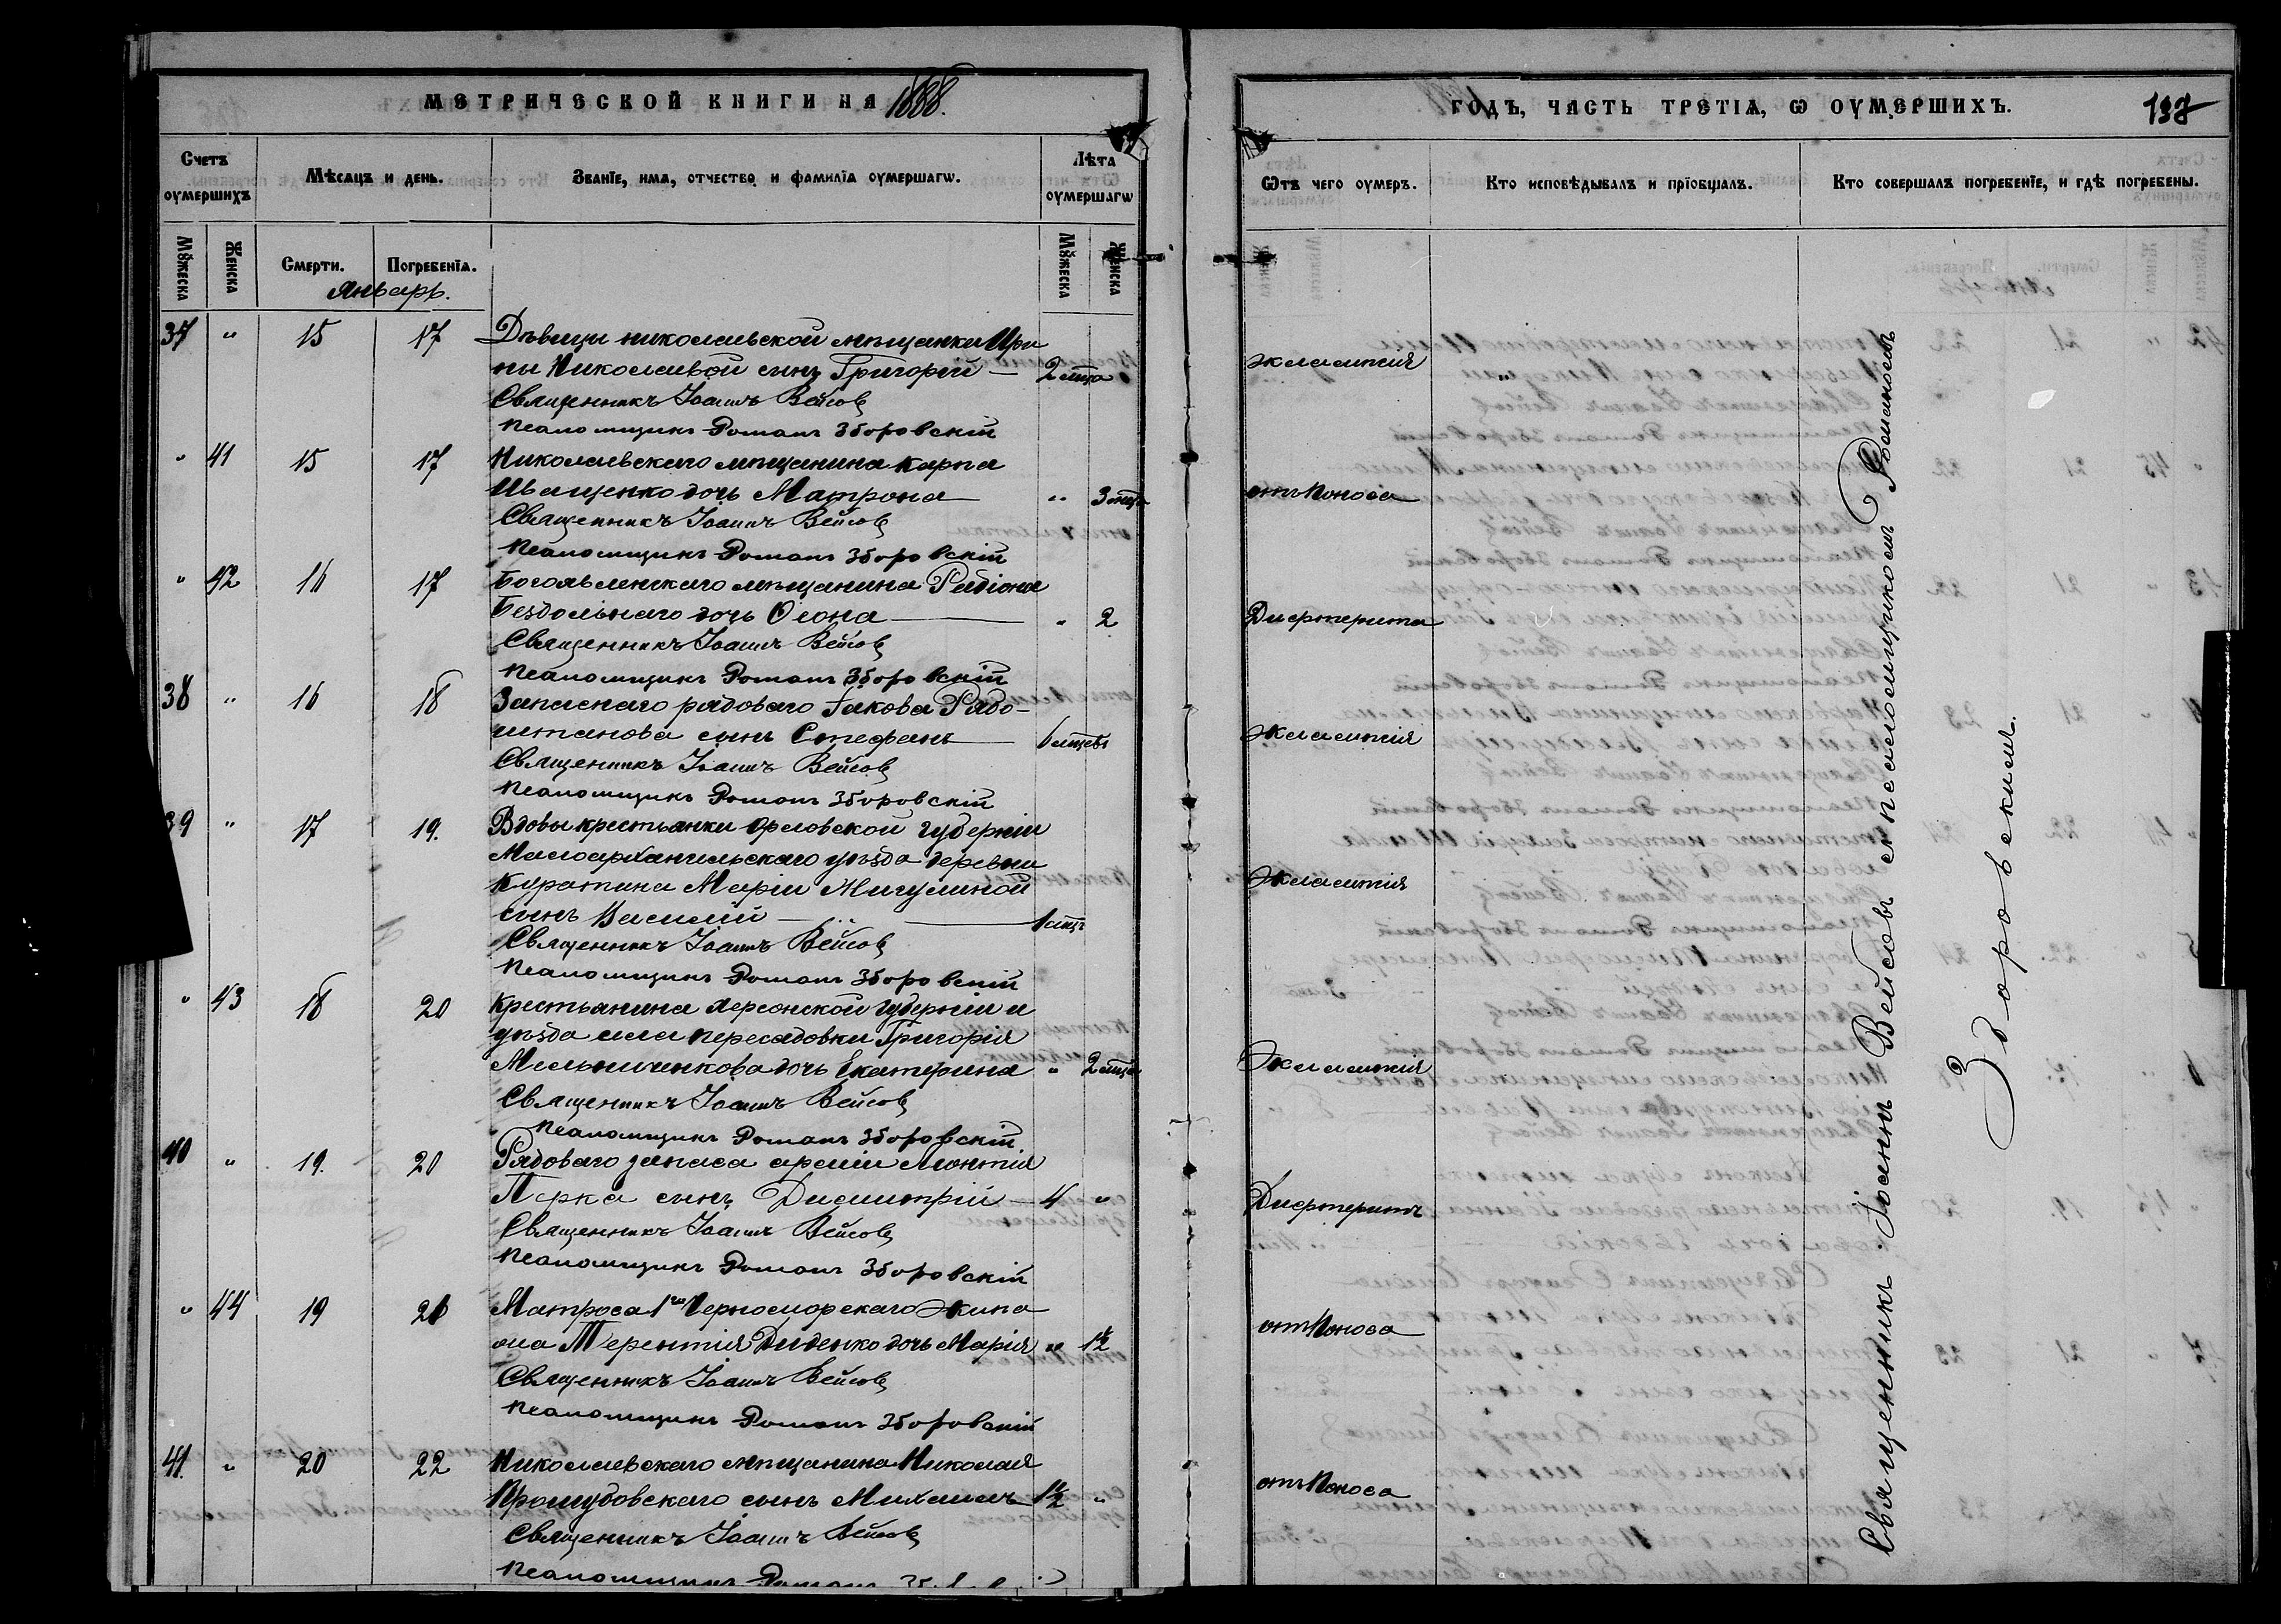 МЕТРИЧЕСКОЙ КНИГИ НА 1888.
ГОДЪ, ЧАСТЬ ТРЕТІѦ, Ѡ ОУМЕРШИХЪ.
Счетъ оумершихъ
Мѣсяцъ и день.
Званіе, имѧ, отчество и фамиліѧ оумершагѡ.
Лѣта оумершагѡ
Ѿтъ чего оумеръ.
Кто исповѣдывалъ и пріобщалъ.
Кто совершалъ погребеніе, и гдѣ погребены.
Мꙋжеска
Женска
Смерти.
Погребеніѧ.
Мꙋжеска
Женска
Январь.
37 " 15 17 Дѣвицы николаевской мѣщанки Ири
ны Николаевой сынъ Григорій — 2 мца Эклампсія
Священникъ Іоаннъ Вейсовъ
Псаломщикъ Романъ Зборовскій
" 41 15 17 Николаевскаго мѣщанина Карпа
Иващенко дочь Матрона — " 3 мца отъ Поноса
Священникъ Іоаннъ Вейсовъ
Псаломщикъ Романъ Зборовскій
" 42 16 17 Богоявленскаго мѣщанина Радіона
Бездольнаго дочь — " 2 Дифтерита
Священникъ Іоаннъ Вейсовъ
Псаломщикъ Романъ Зборовскій
38 " 16 18 Запаснаго рядоваго Іакова Радо-
сынъ Стефанъ — 6 мцевъ Эклампсія
Священникъ Іоаннъ Вейсовъ
Псаломщикъ Романъ Зборовскій
39 " 17 19. Вдовы крестьянки Орловской губерніи
Малоархангельскаго уѣзда деревни
Куратина Маріи Жигулиной
сынъ Василій — 1 мцъ Эклампсія
Священникъ Іоаннъ Вейсовъ
Псаломщикъ Романъ Зборовскій
" 43 18 20 Крестьянина Херсонской губерніи и
уѣзда села Пересадовки Григорія
Мельниченкова дочь Екатерина " 2 мца Эклампсія
Священникъ Іоаннъ Вейсовъ
Псаломщикъ Романъ Зборовскій
40 " 19. 20 Рядоваго запаса арміи Леонтія
сынъ Димитрій — 4 " Дифтеритъ
Священникъ Іоаннъ Вейсовъ
Псаломщикъ Романъ Зборовскій
" 44 19 21 Матроса 1го Черноморскаго Экипа
жа Терентія Диденко дочь Марія " 1½ отъ Поноса
Священникъ Іоаннъ Вейсовъ
Псаломщикъ Романъ Зборовскій
41. " 20 22 Николаевскаго мѣщанина Николая
сынъ Михаилъ 1½ " отъ Поноса
Священникъ Іоаннъ Вейсовъ
Псаломщикъ Романъ
Священникъ Іоаннъ Вейсовъ съ псаломщикомъ Романомъ
Зборовскимъ.